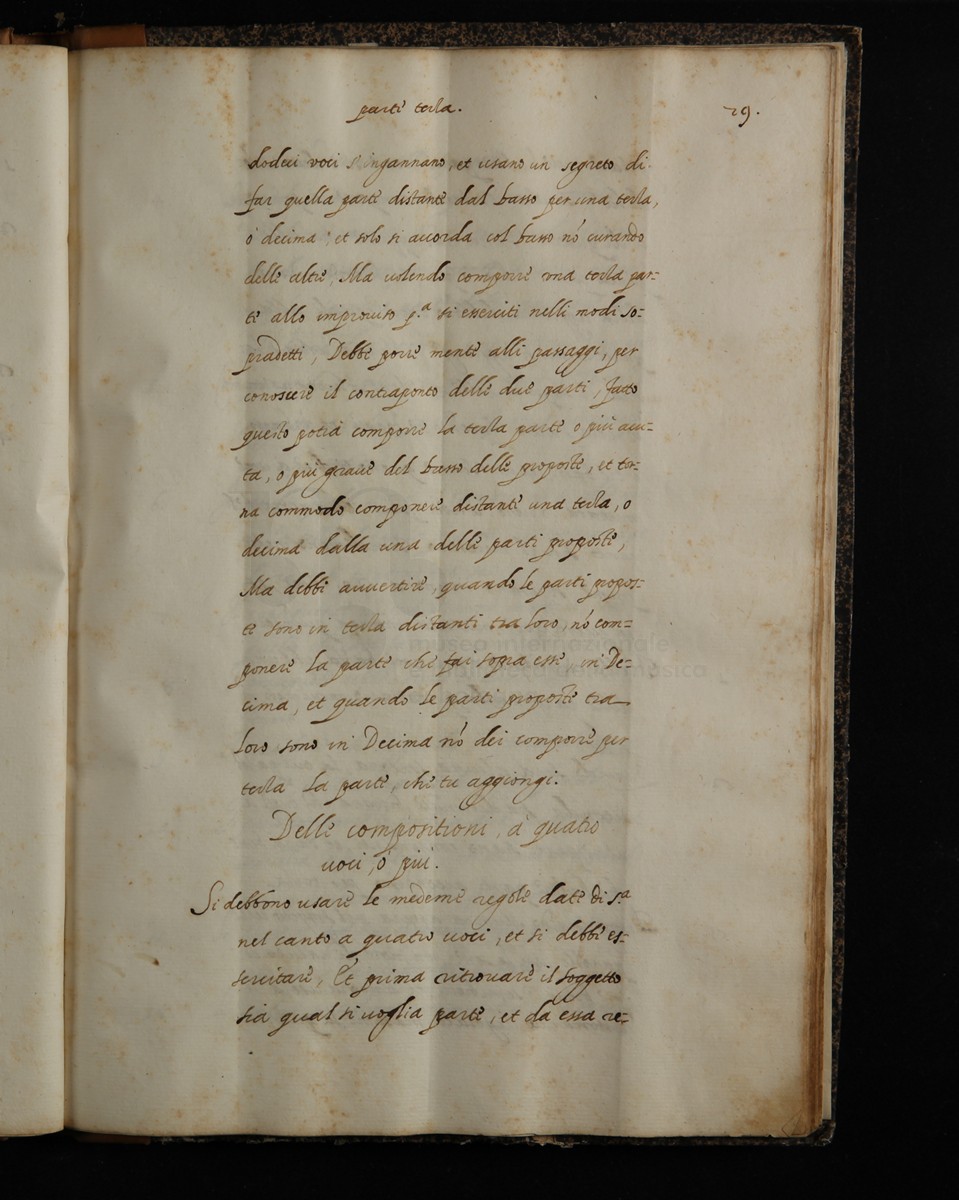 parte terza. 29.
dodeci voci s'ingannano, et usano un segreto di
far quella parte distante dal basso per una terza,
ò decima; et solo si accorda col basso nõ curando
delle altre, Ma volendo comporre una terza par=
te allo improviso p.ª si esserciti nelli modi so=
pradetti, Debbe porre mente alli passaggi, per
conoscere il contraponto delle due parti, fatto
questo potrà comporre la terza parte o più acu=
ta, o più grave del basso delle proposte, et tor=
na commodo componere distante una terza, o
decima dalla una delle parti proposte,
Ma debbi avvertire, quando le parti propos=
te sono in terza distanti tra loro, nõ com=
ponere la parte che fai sopra esse, in De=
cima, et quando le parti proposte tra
loro sono in Decima nõ dei comporre per
terza la parte, che tu aggiongi.
Delle compositioni, à quatro
voci, ò più.
Si debbono usare le medeme regole date di s.ª
nel canto a quatro voci, et si debbe es=
sercitare, Et prima ritrovare il soggetto
sia qual si voglia parte, et da essa re=